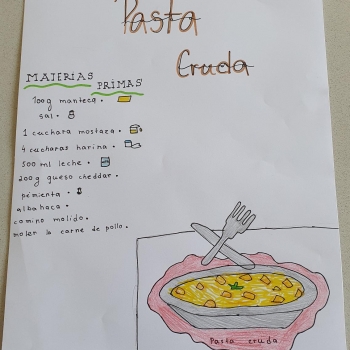 Pasta
Cruda
MATERIAS
PRIMAS
100g manteca.
sal.
1 cuchara mostaza.
4 cucharas harina.
500 ml leche.
200g gueso cheddar.
pimienta.
albahaca.
comino molido.
moler la carne de pollo.
Pasta cruda